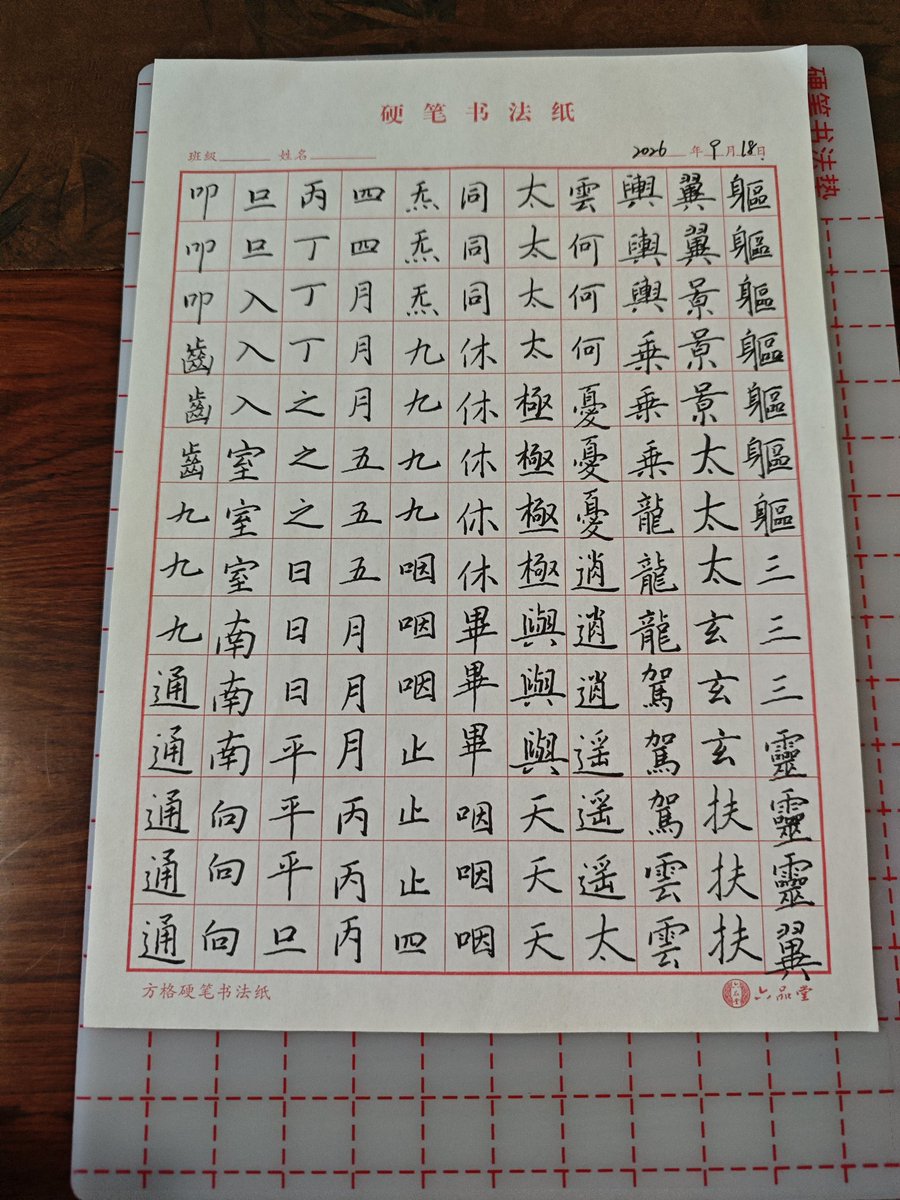 硬笔书法纸
班级 姓名 2026年9月18日
軀軀軀軀軀軀軀三三三靈靈靈翼
翼翼景景景太太太玄玄玄扶扶扶
輿輿輿乗乗乗龍龍龍駕駕駕雲雲
雲何何何憂憂憂逍逍逍遥遥遥太
太太太太極極極極與與與天天天
同同同休休休休休畢畢畢咽咽咽
炁炁炁九九九九咽咽咽止止止四
四四月月月五五五月月月丙丙丙
丙丁丁丁之之之日日日平平平旦
旦旦入入入室室室南南南向向向
叩叩叩齒齒齒九九九通通通通通
方格硬笔书法纸
六品堂
硬笔书法垫